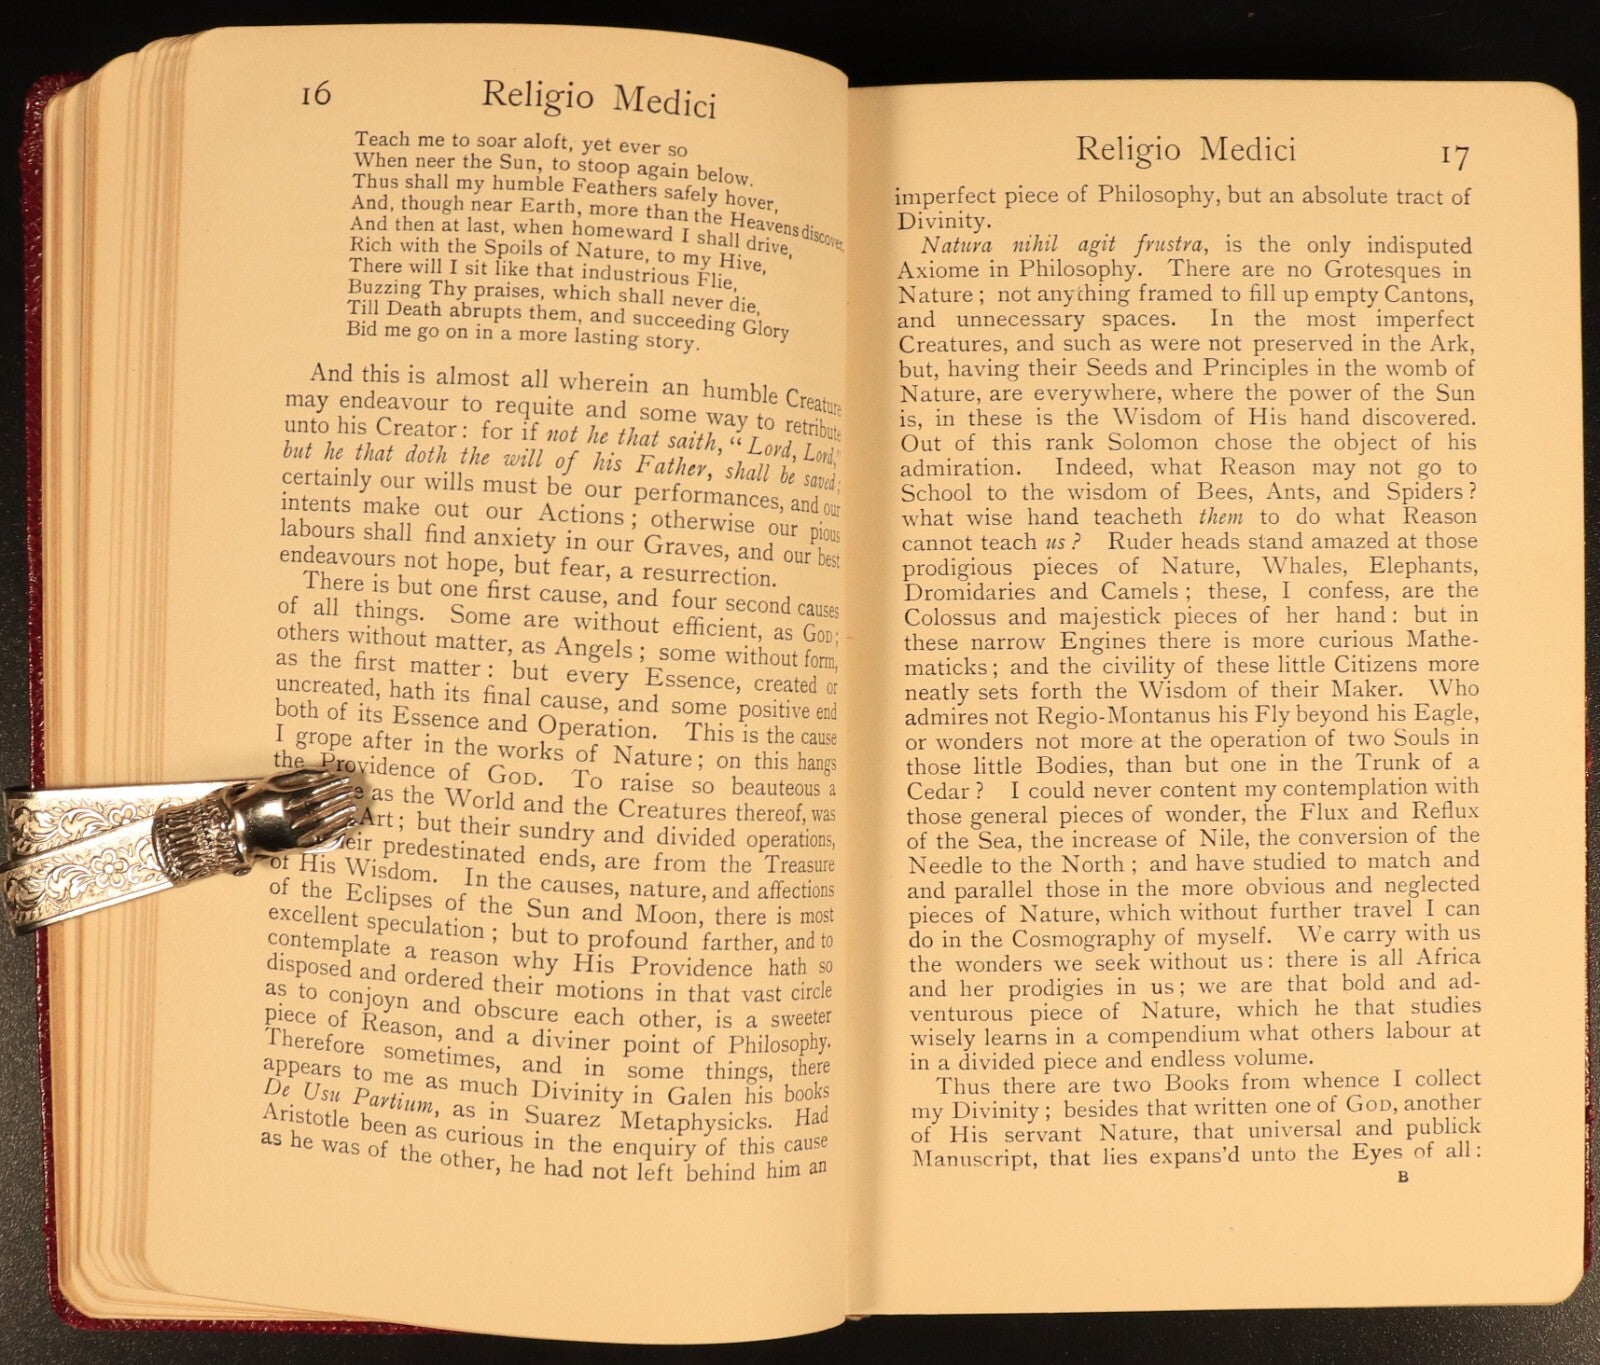 16 Religio Medici
Teach me to soar aloft, yet ever so
When neer the Sun, to stoop again below.
Thus shall my humble Feathers safely hover,
And, though near Earth, more than the Heavens discover.
And then at last, when homeward I shall drive,
Rich with the Spoils of Nature, to my Hive,
There will I sit like that industrious Flie,
Buzzing Thy praises, which shall never die,
Till Death abrupts them, and succeeding Glory
Bid me go on in a more lasting story.
And this is almost all wherein an humble Creature
may endeavour to requite and some way to retribute
unto his Creator: for if not he that saith, “Lord, Lord,”
but he that doth the will of his Father, shall be saved;
certainly our wills must be our performances, and our
intents make out our Actions; otherwise our pious
labours shall find anxiety in our Graves, and our best
endeavours not hope, but fear, a resurrection.
There is but one first cause, and four second causes
of all things. Some are without efficient, as GOD;
others without matter, as Angels; some without form,
as the first matter: but every Essence, created or
uncreated, hath its final cause, and some positive end
both of its Essence and Operation. This is the cause
I grope after in the works of Nature; on this hangs
the Providence of GOD. To raise so beauteous a
as the World and the Creatures thereof, was
Art; but their sundry and divided operations,
predestinated ends, are from the Treasure
of His Wisdom. In the causes, nature, and affections
of the Eclipses of the Sun and Moon, there is most
excellent speculation; but to profound farther, and to
contemplate a reason why His Providence hath so
disposed and ordered their motions in that vast circle
as to conjoyn and obscure each other, is a sweeter
piece of Reason, and a diviner point of Philosophy.
Therefore sometimes, and in some things, there
appears to me as much Divinity in Galen his books
De Usu Partium, as in Suarez Metaphysicks. Had
Aristotle been as curious in the enquiry of this cause
as he was of the other, he had not left behind him an
Religio Medici 17
imperfect piece of Philosophy, but an absolute tract of
Divinity.
Natura nihil agit frustra, is the only indisputed
Axiome in Philosophy. There are no Grotesques in
Nature; not anything framed to fill up empty Cantons,
and unnecessary spaces. In the most imperfect
Creatures, and such as were not preserved in the Ark,
but, having their Seeds and Principles in the womb of
Nature, are everywhere, where the power of the Sun
is, in these is the Wisdom of His hand discovered.
Out of this rank Solomon chose the object of his
admiration. Indeed, what Reason may not go to
School to the wisdom of Bees, Ants, and Spiders?
what wise hand teacheth them to do what Reason
cannot teach us? Ruder heads stand amazed at those
prodigious pieces of Nature, Whales, Elephants,
Dromidaries and Camels; these, I confess, are the
Colossus and majestick pieces of her hand: but in
these narrow Engines there is more curious Mathe-
maticks; and the civility of these little Citizens more
neatly sets forth the Wisdom of their Maker. Who
admires not Regio-Montanus his Fly beyond his Eagle,
or wonders not more at the operation of two Souls in
those little Bodies, than but one in the Trunk of a
Cedar? I could never content my contemplation with
those general pieces of wonder, the Flux and Reflux
of the Sea, the increase of Nile, the conversion of the
Needle to the North; and have studied to match and
and parallel those in the more obvious and neglected
pieces of Nature, which without further travel I can
do in the Cosmography of myself. We carry with us
the wonders we seek without us: there is all Africa
and her prodigies in us; we are that bold and ad-
venturous piece of Nature, which he that studies
wisely learns in a compendium what others labour at
in a divided piece and endless volume.
Thus there are two Books from whence I collect
my Divinity; besides that written one of GOD, another
of His servant Nature, that universal and publick
Manuscript, that lies expans'd unto the Eyes of all:
B